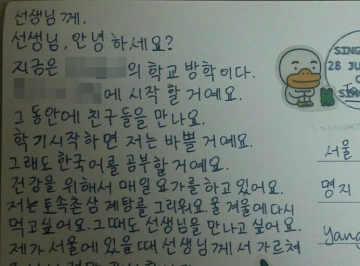 선생님께,
선생님, 안녕하세요?
지금은 의 학교 방학이다.
에 시작 할 거예요.
그 동안에 친구들을 만나요.
학기시작하면 저는 바쁠 거예요.
그래도 한국어를 공부할 거예요.
건강을 위해서 매일 요가를 하고 있어요.
저는 토속촌 삼계탕을 그리워요. 올 겨울에 다시
먹고싶어요. 그때도 선생님을 만나고 싶어요.
제가 서울에 있을 때 선생님께서 가르쳐
SING
28 JU
SIN
서울
명지
Yang